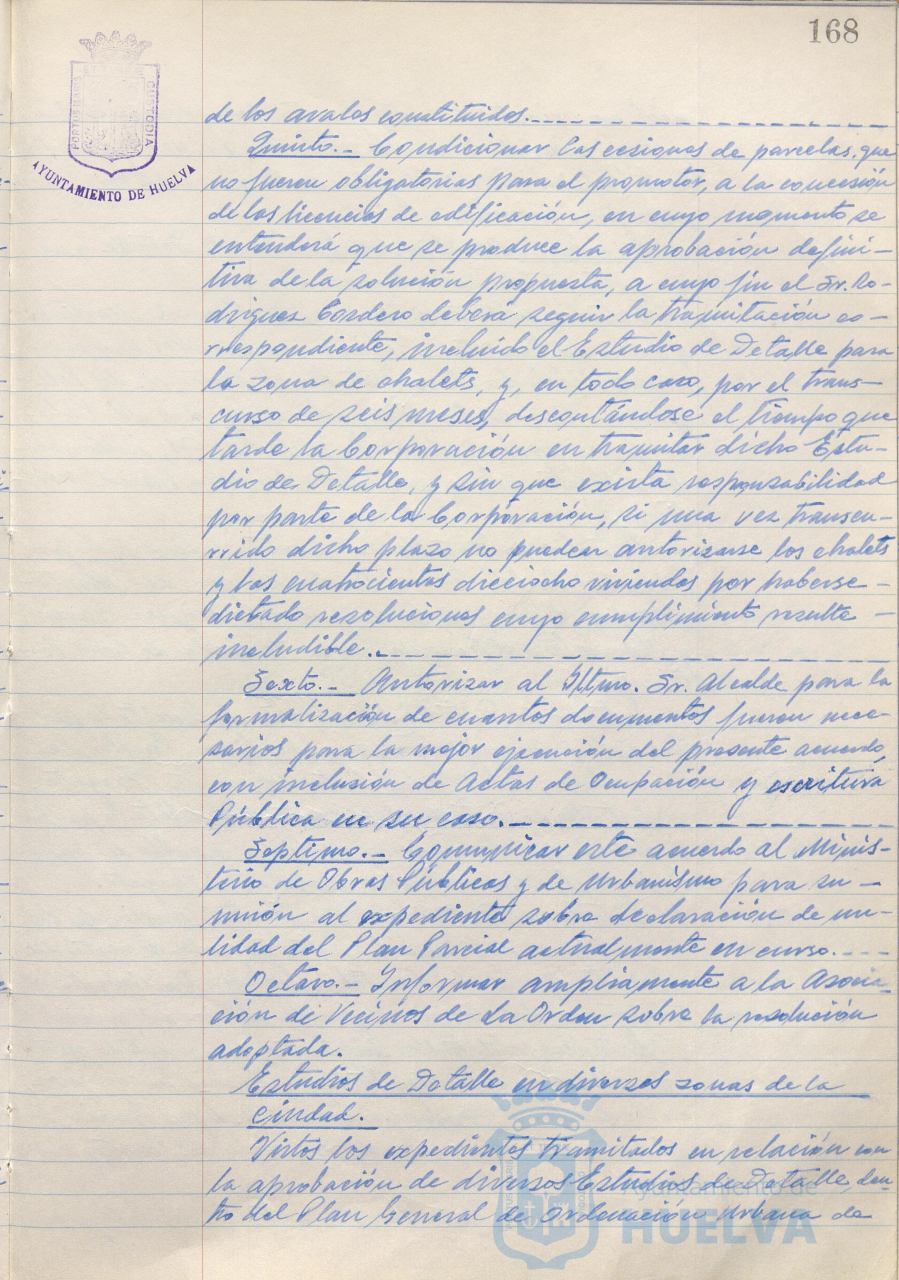 168
PORTUS MARIS
CUSTODIA
AYUNTAMIENTO DE HUELVA
de los avales constituidos.
Quinto.- Condicionar las cesiones de parcelas, que
no fueren obligatorias para el promotor, a la concesión
de las licencias de edificación, en cuyo momento se
entenderá que se produce la aprobación defini-
tiva de la solución propuesta, a cuyo fin el Sr. Ro-
driguez Cordero deberá seguir la tramitación co-
rrespondiente, incluido el Estudio de Detalle para
la zona de chalets, y, en todo caso, por el trans-
curso de seis meses, descontándose el tiempo que
tarde la Corporación en tramitar dicho Estu-
dio de Detalle, y sin que exista responsabilidad
por parte de la Corporación, si una vez transcu-
rrido dicho plazo no puedan autorizarse los chalets
y las cuatrocientas dieciocho viviendas por haberse-
dictado resoluciones cuyo cumplimiento resulte -
ineludible.
Sexto.- Autorizar al Iltmo. Sr. Alcalde para la
formalización de cuantos documentos fueren nece-
sarios para la mejor ejecución del presente acuerdo,
con inclusión de Actas de Ocupación y escritura
Pública en su caso.
Septimo.- Comunicar este acuerdo al Minis-
terio de Obras Públicas y de Urbanismo para su -
unión al expediente sobre declaración de nu-
lidad del Plan Parcial actualmente en curso.
Octavo.- Informar ampliamente a la Asocia-
ción de Vecinos de La Orden sobre la resolución
adoptada.
Estudios de Detalle en diverses zonas de la
ciudad.
Vistos los expedientes tramitados en relación con
la aprobación de diversos Estudios de Detalle, den-
tro del Plan General de Ordenación Urbana de
Ayuntamiento de
HUELVA